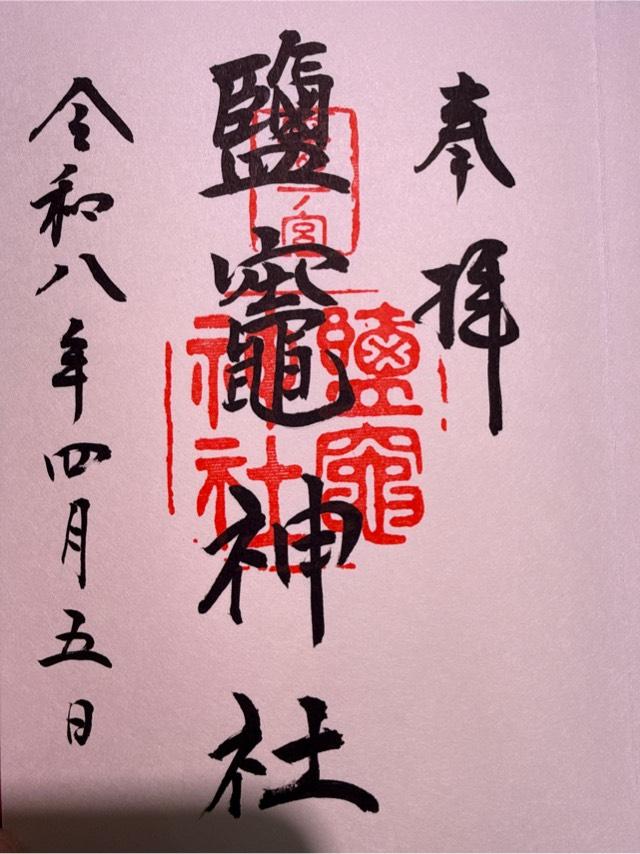 奉拝
鹽竈神社
令和八年四月五日
一ノ宮
鹽竈
神社